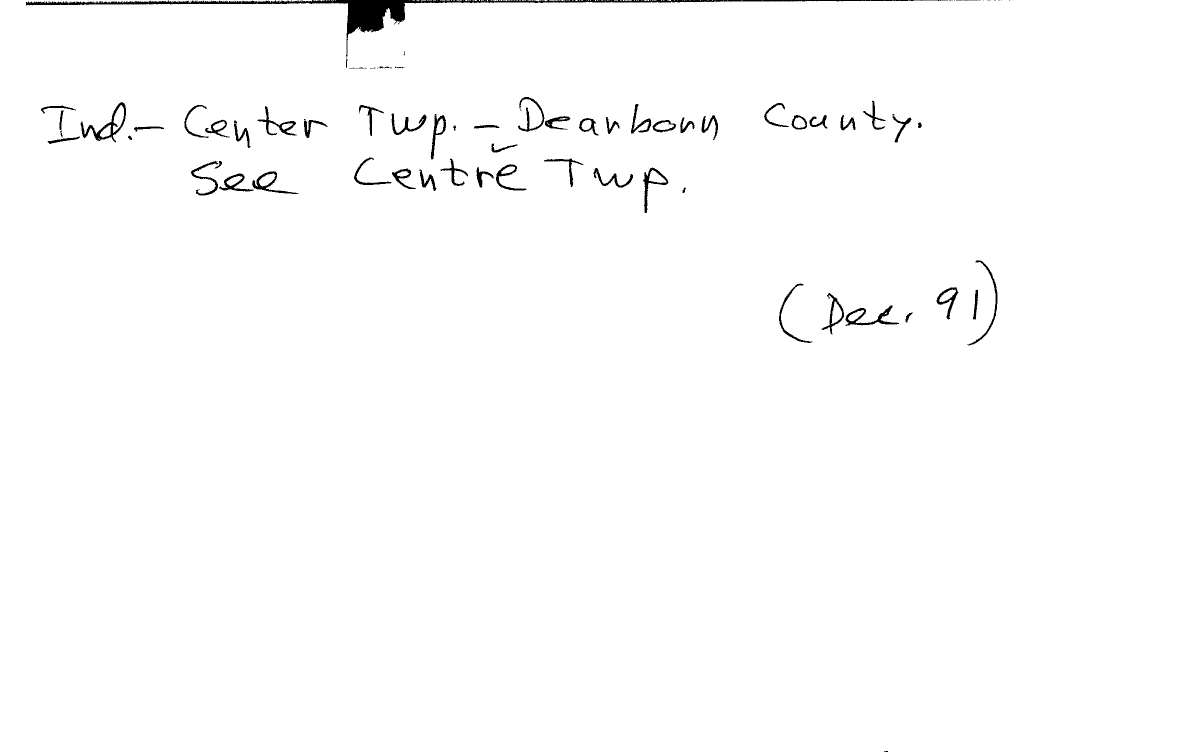 Ind.- Center Twp. - Dearborn County.
See Centre Twp.
(Dec. 91)